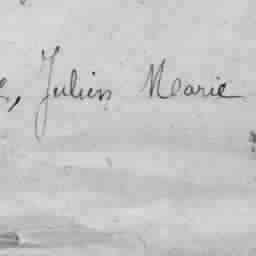 , Julien Marie